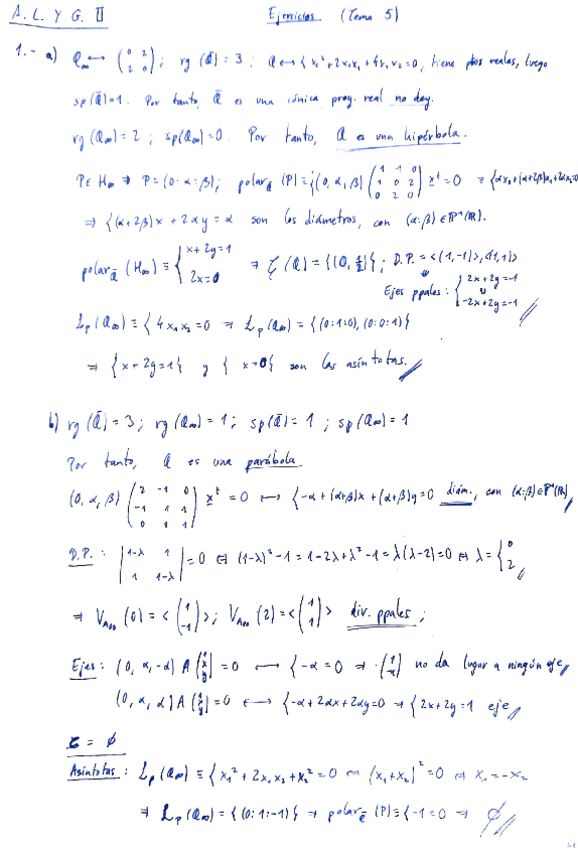 A. L. Y G. II Ejercicios (Tema 5)
1.- a) Q∞ ↔ (0 2 / 2 0); rg (Q̄) = 3; Q ↔ { x₁² + 2x₀x₁ + 4x₁x₂ = 0, tiene ptos reales, luego
sp(Q̄)=1. Por tanto, Q̄ es una cónica proy. real no deg.
rg(Q∞) = 2; sp(Q∞) = 0. Por tanto, Q es una hipérbola.
P ∈ H∞ ⇒ P = (0:α:β); polar (P) ≡ {(0, α, β) (1 1 0 / 1 0 2 / 0 2 0) x^t = 0
⇒ {(α+2β)x + 2αy = α son los diámetros, con (α:β) ∈ P¹(ℝ).
polar (H∞) ≡ { x+2y=1 / 2x=0 ⇒ ζ(Q) = {(0, 1/2)}; D.P. = <(1,-1)>, <(1,1)>
Ejes ppales: { 2x+2y=-1 / -2x+2y=-1
Lp(Q∞) ≡ { 4x₁x₂ = 0 ⇒ Lp(Q∞) = {(0:1:0), (0:0:1)}
⇒ {x+2y=1} y { x=0} son las asíntotas.
b) rg(Q̄) = 3; rg(Q∞) = 1; sp(Q̄) = 1; sp(Q∞) = 1
Por tanto, Q es una parábola.
(0, α, β) (2 -1 0 / -1 1 1 / 0 1 1) x^t = 0 ↔ {-α + (α+β)x + (α+β)y = 0 diám., con (α:β) ∈ P¹(ℝ)
D.P.: |1-λ 1 / 1 1-λ| = 0 ⇔ (1-λ)² - 1 = 1 - 2λ + λ² - 1 = λ(λ-2) = 0 ⇔ λ = { 0 / 2
⇒ V_A∞(0) = <(1 / -1)>; V_A∞(2) = <(1 / 1)> dir. ppales;
Ejes: (0, α, -α) A (1 / x / y) = 0 ↔ {-α = 0 ⇒ (1 / -1) no da lugar a ningún eje
(0, α, α) A (1 / x / y) = 0 ↔ {-α + 2αx + 2αy = 0 ⇒ {2x + 2y = 1 eje
ζ = ∅
Asíntotas: Lp(Q∞) ≡ { x₁² + 2x₁x₂ + x₂² = 0 ⇔ (x₁+x₂)² = 0 ⇔ x₁ = -x₂
⇒ Lp(Q∞) = {(0:1:-1)} ⇒ polar (P) ≡ {-1 = 0 ⇒ ∅